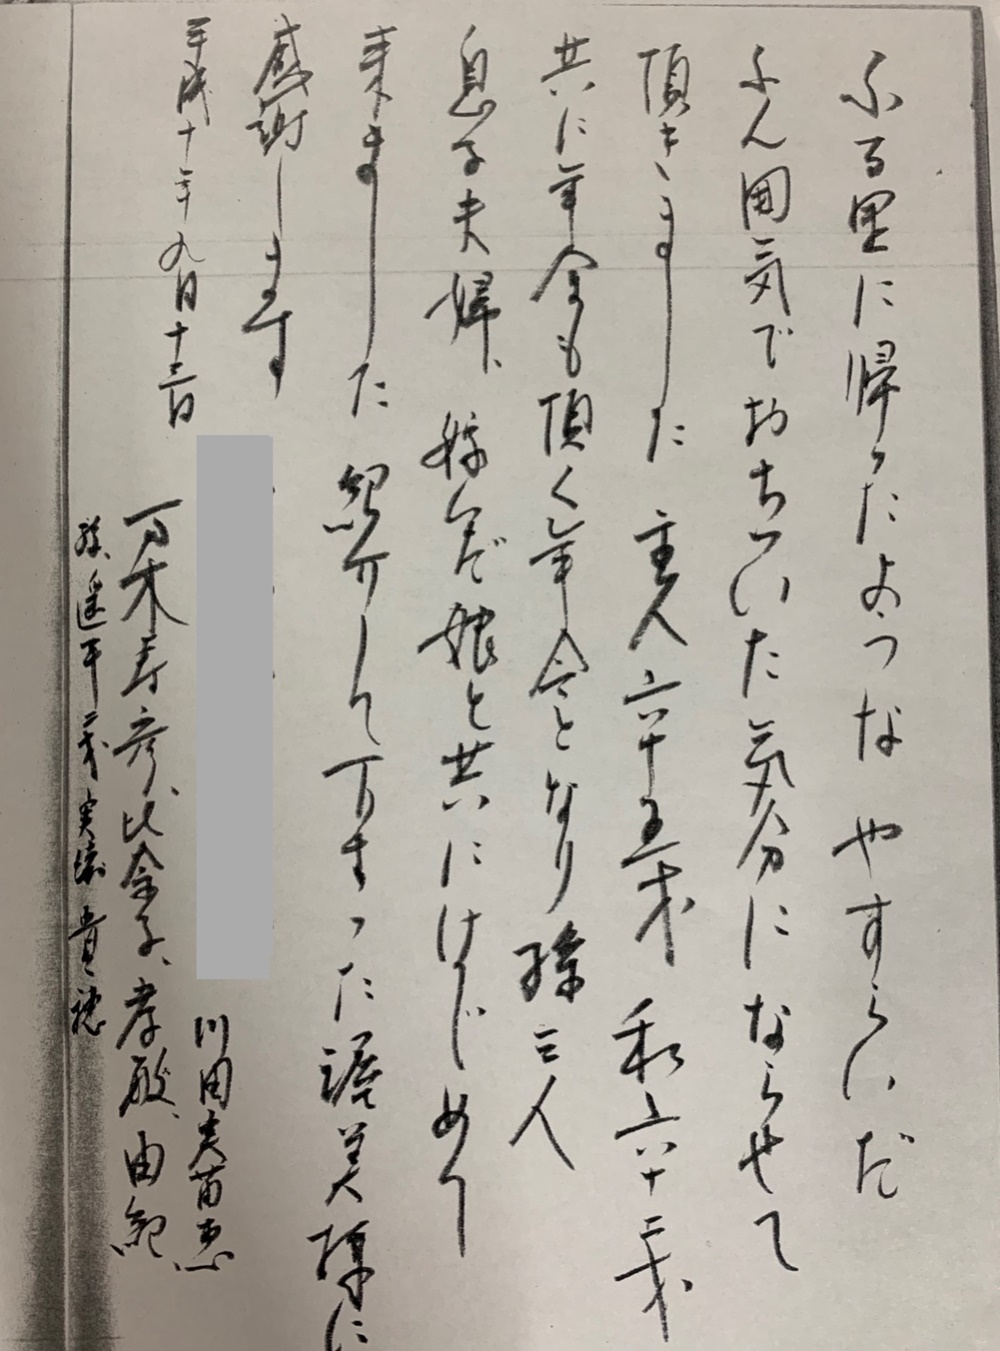 ふる里に帰ったようなやすらいだ
ふん囲気でおちついた気分にならせて
頂きました 主人六十五才 私六十二才
共に年金も頂く年令となり 孫三人
息子夫婦、嫁んだ娘と共にはじめて
来ました 紹介して下さった 美様に
感謝します
平成十年九月十三日
川田 恵
万木寿彦、比佘子、孝敏、由紀
孫、遥平二才 実 貴穂